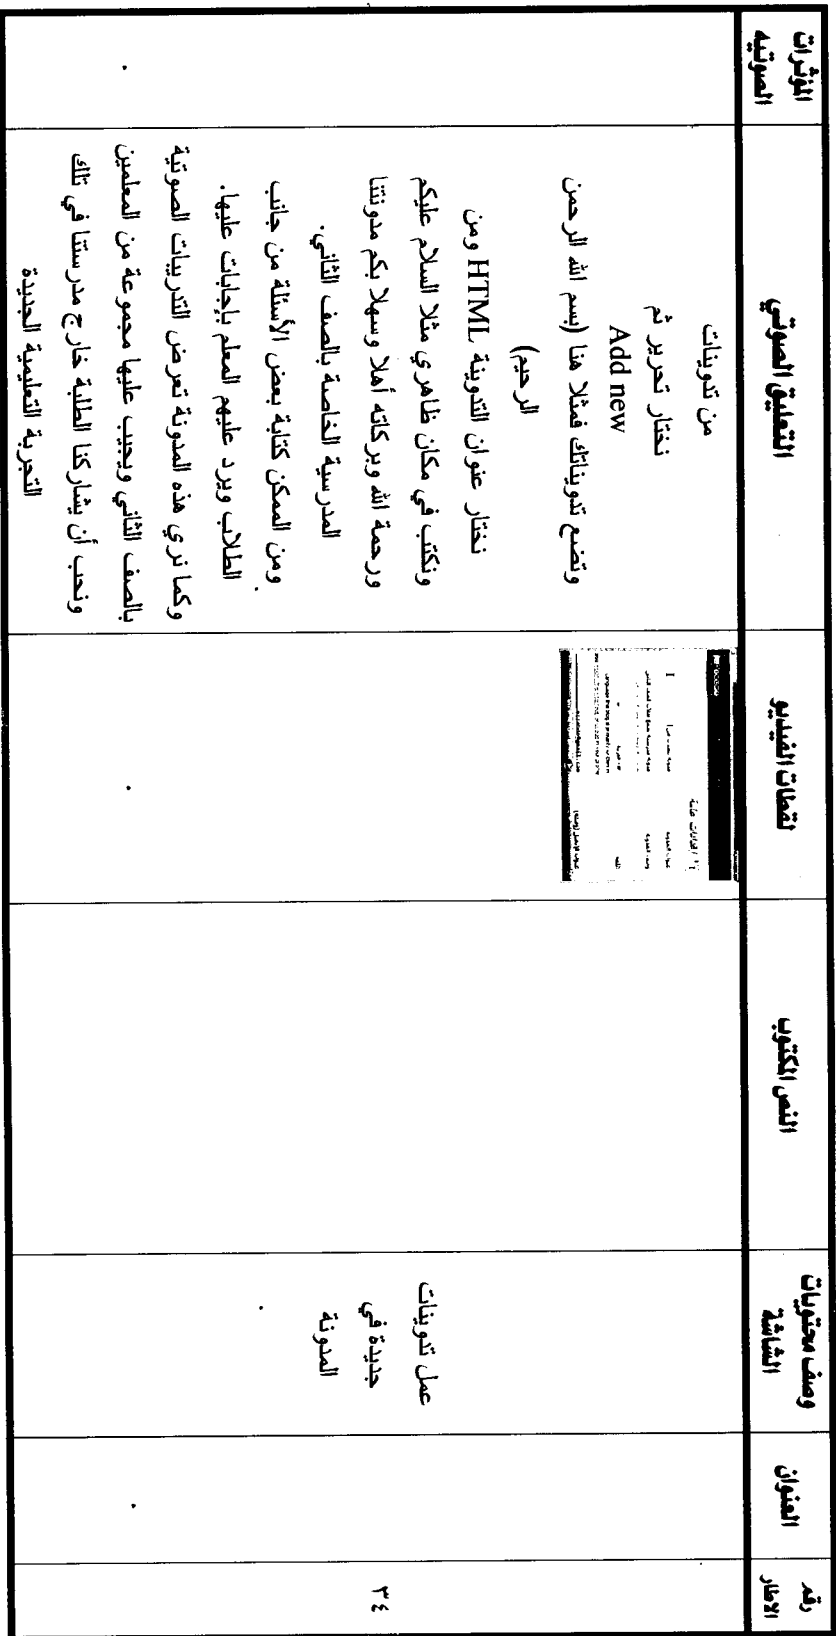 رقم
الاطار
العنوان
وصف محتويات
الشاشة
النص المكتوب
لقطات الفيديو
التعليق الصوتي
المؤثرات
الصوتيه
٣٤
عمل تدوينات
جديدة في
المدونة
من تدوينات
نختار تحرير ثم
Add new
وتضع تدويناتك فمثلا هنا (بسم الله الرحمن
الرحيم)
نختار عنوان التدوينة HTML ومن
ونكتب في مكان ظاهري مثلا السلام عليكم
ورحمة الله وبركاته أهلا وسهلا بكم مدونتنا
المدرسية الخاصة بالصف الثاني.
ومن الممكن كتابة بعض الأسئلة من جانب
الطلاب ويرد عليهم المعلم بإجابات عليها.
وكما نري هذه المدونة تعرض التدريبات الصوتية
بالصف الثاني ويجيب عليها مجموعة من المعلمين
ونحب أن يشاركنا الطلبة خارج مدرستنا في تلك
التجربة التعليمية الجديدة